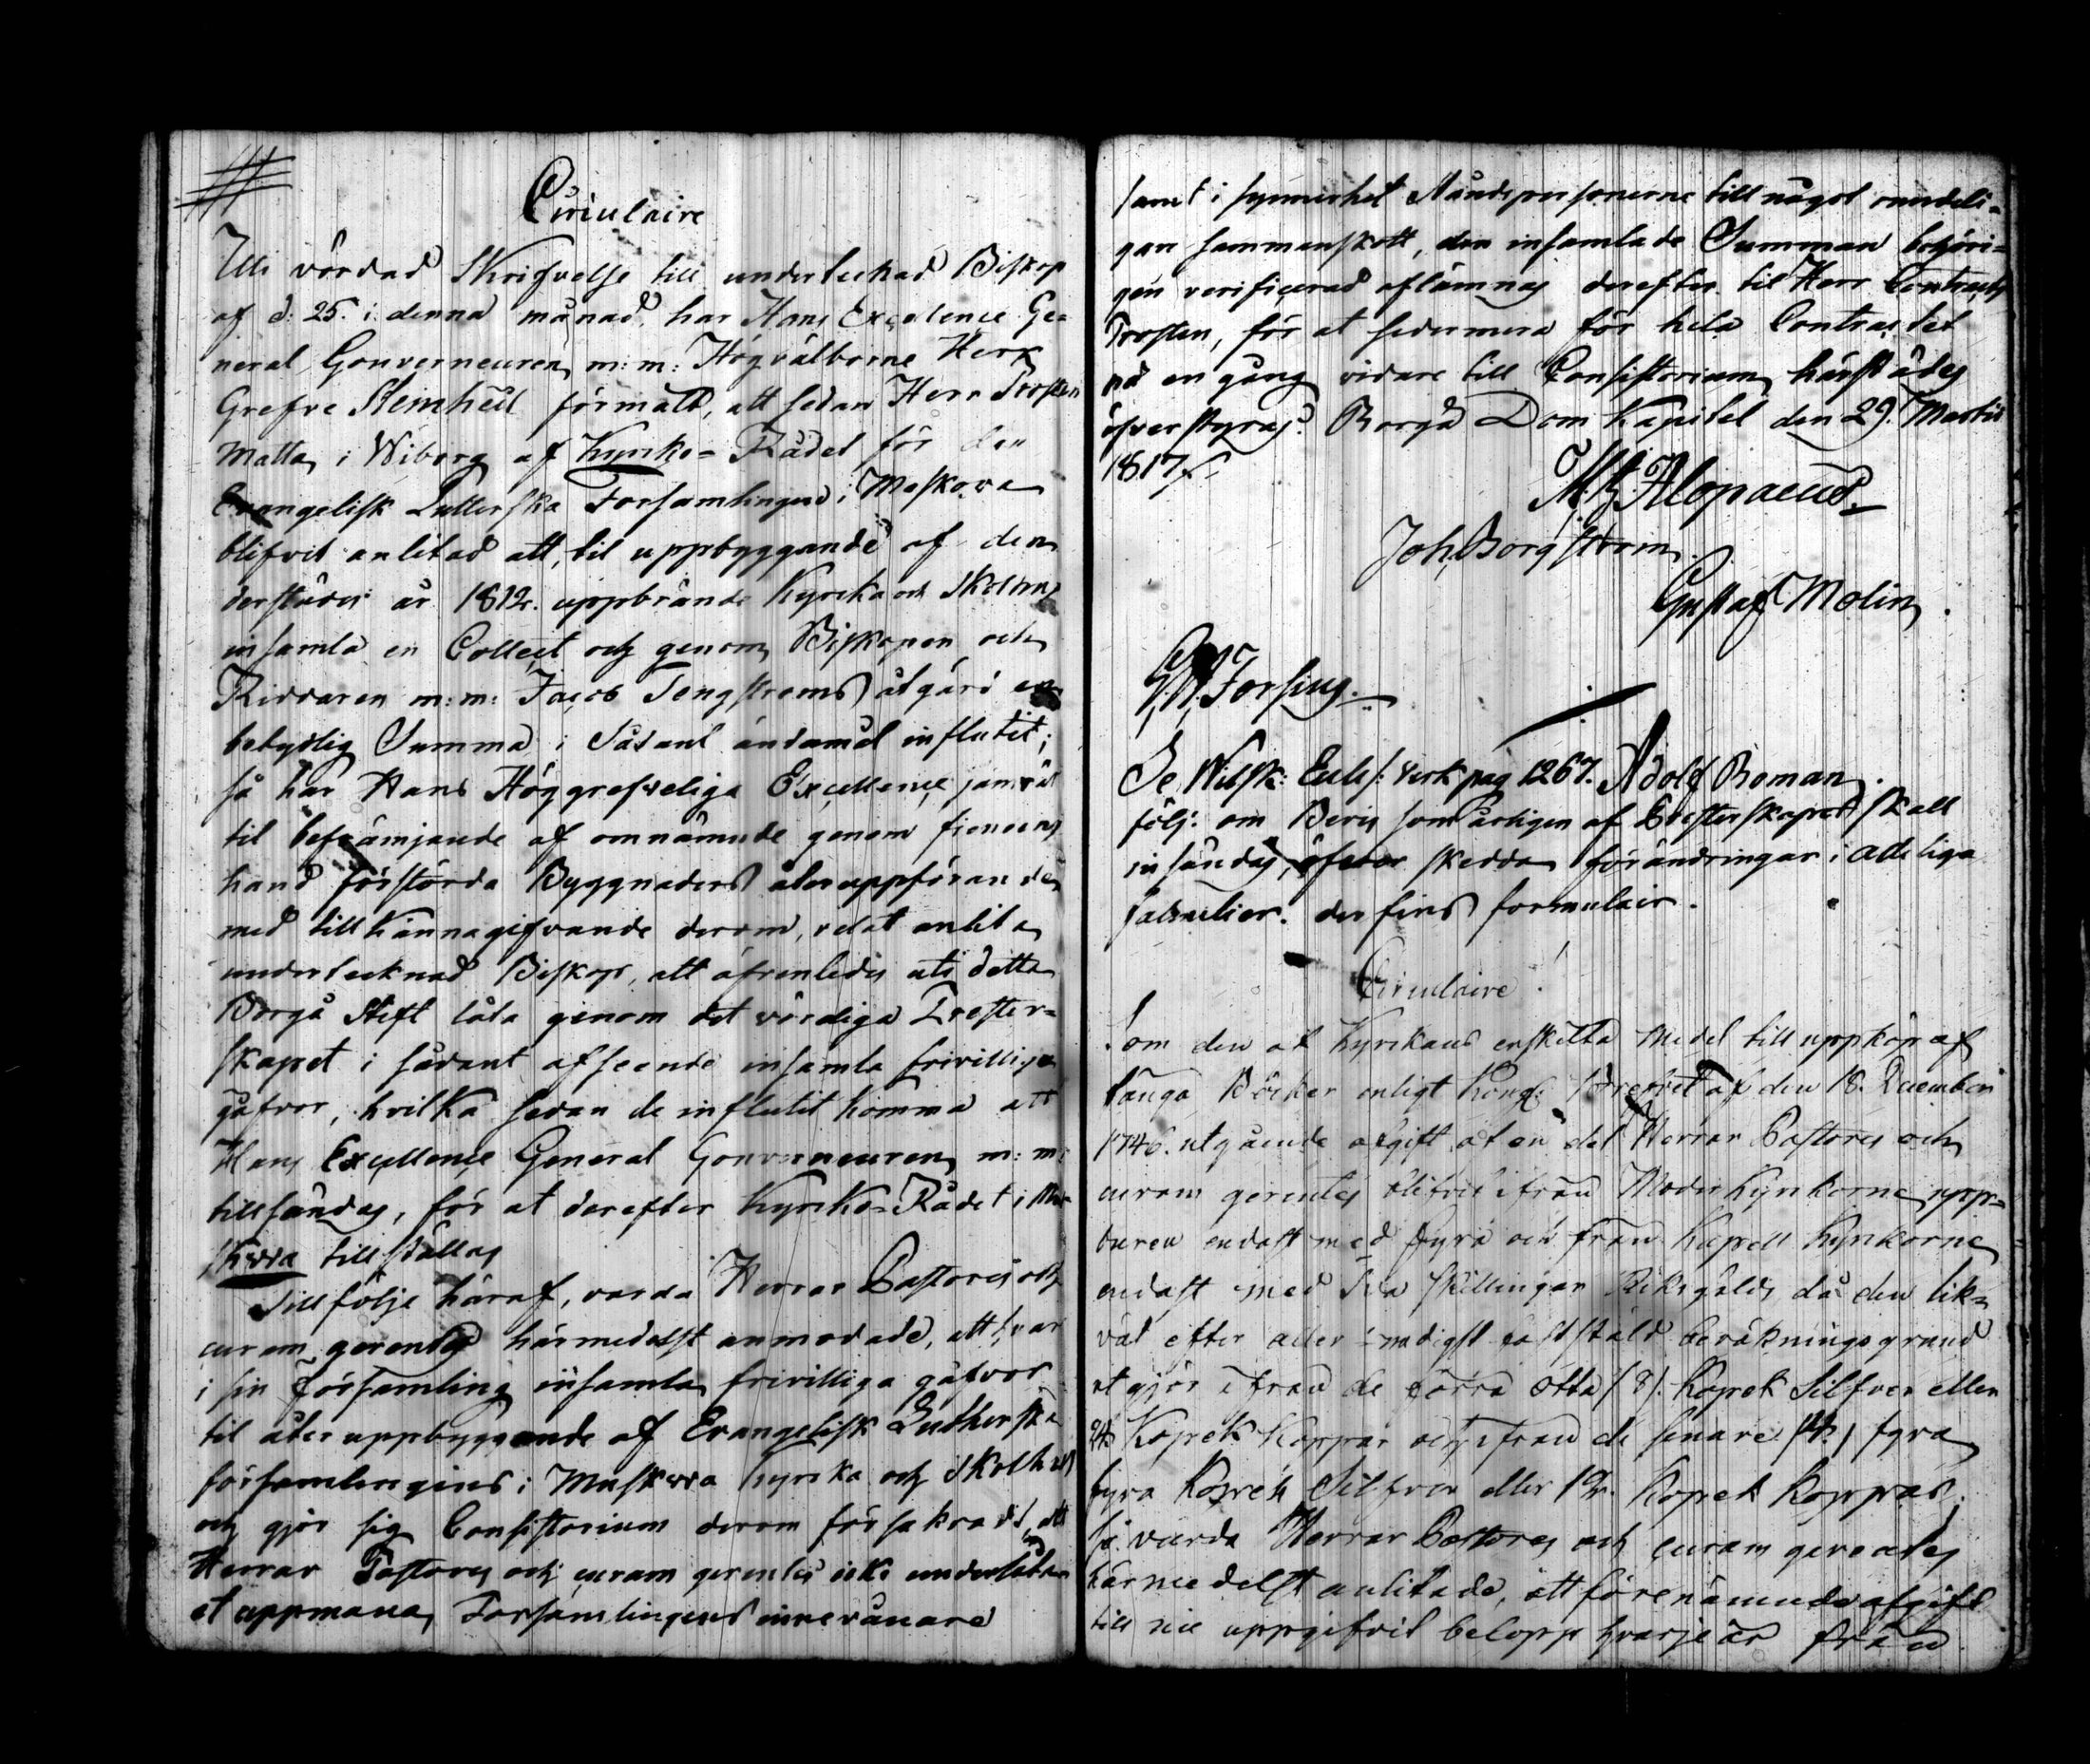 Circulaire
Uti vördad Skrifvelse till undertecknad Biskop
af d: 25. i denna månad, har Hans Excelence Ge=
neral Gouverneuren m:m: Högvälborne Herr
Grefve Steinheil förmält, att sedan Herr Prosten
Matta i Wiborg af Kyrko=Rådet för den
Evangelisk Lutterska Församlingen i Moskova
blifvit anlitad att, til uppbyggande af den
derstädes år 1812. uppbrände Kyrcka och Skolhus
insamla en Collect och genom Biskopen och
Riddaren m:m: Jacob Tengströms åtgärd en
betydlig Summa i Sådant ändamål influtit;
så har Hans Höggrefveliga Excellence jämväl
til befrämjande af omnämnde genom fiendens
hand förstörda Byggnaders återuppförande
med tillkännagifvande derom, velat anlita
undertecknad Biskop, att äfvenledes uti detta
Borgå Stift låta genom det vördiga Prester=
skapet i sådant afseende insamla frivilliga
gåfvor, hvilka sedan de influtit komma att
Hans Excellence General Gouverneuren m:m:
tillsändas, för at derefter Kyrko=Rådet i Mo
skva tillställas
Till följe häraf, varda Herrar Pastores och
curam gerentes härmedelst anmodade, att hvar
i sin Församling insamla frivilliga gåfvor
til återuppbyggande af Evangelisk Lutherska
församlingens i Muskova Kyrcka och Skolhus
och gjör sig Consistorium derom försäkradt, att
Herrar Pastores och curam gerentes icke underlåta
at uppmana Församlingens innevånare
samt i synnerhet Ståndspersonerne till något ömdeli=
gare sammanskott, den insamlade Summan behöri=
gen verificerad aflämnas derefter til Herr Contracts
Prosten, för at sedermera för hela Contractet
på en gång vidare till Consistorium härstädes
öfverstyras. Borgå Dom Kapitel den 29. Martii
1817.
M. Alopaeus.
Joh. Borgström.
Gustaf Molin.
G. W. Forsius.
Adolf Boman.
Se Wilsk: Eccles: Verk pag 1267.
följ: om Bevis som årligen af Presterskapet skall
insändas, öfver skedda förändringar i adeliga
familier. der fins formulair.
Circulaire
Som den at Kyrkans enskilta Medel till uppköp af
Tånga Böcker enligt Kongl: Brefvet af den 18. December
1746. utgående afgift at en del Herrar Pastores och
curam gerentes blifvit ifrån Moder Kyrkorne upp=
buren endast med fyra och från Kapell Kyrkorne
endast med två Skillingar Riksgälds då den lik=
väl efter aller=nådigst fastställd beräkningsgrund
utgjör ifrån de förra åtta (8): Kopek Silfver eller
24 Kopek Koppar och ifrån de senare (4.) fyra
fyra Kopek Silfver eller 12. Kopek Koppar;
så varda Herrar Pastores och curam gerentes
härmedelst anlitade, att förenämnde afgift
till nu uppgifvit belopp hvarje år från